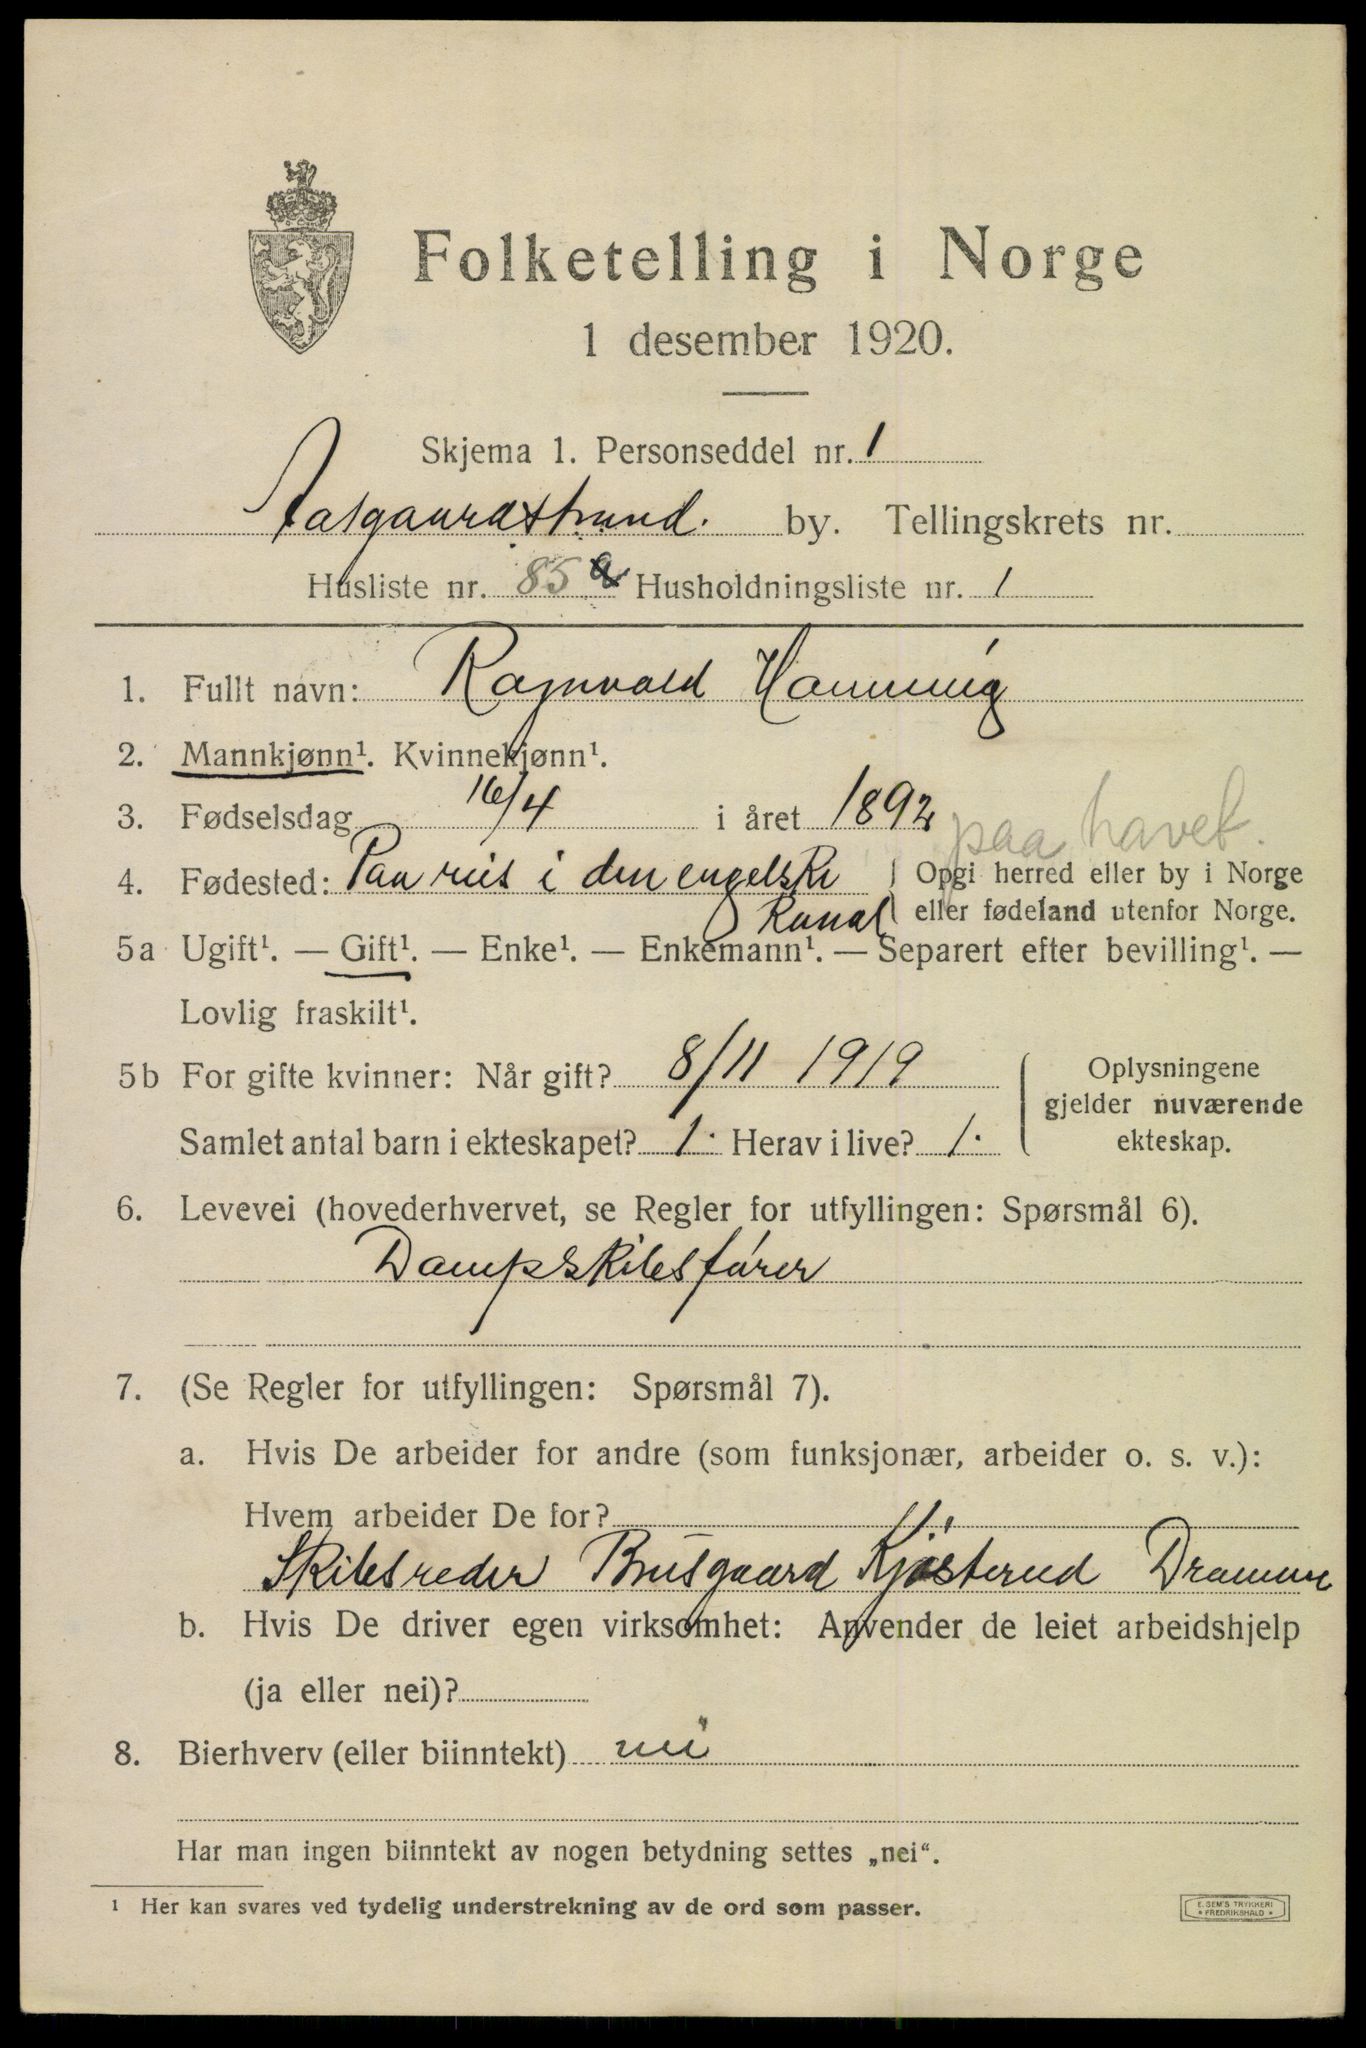 Folketelling i Norge
1 desember 1920.
Skjema 1. Personseddel nr. 1
Aasgaardstrand. by. Tellingskrets nr.
Husliste nr. 85 a Husholdningsliste nr. 1
1. Fullt navn: Ragnvald Hanning
2. Mannkjønn¹. Kvinnekjønn¹.
3. Fødselsdag 16/4 i året 1892
paa havet.
4. Fødested: Paa reis i den engelske Kanal
Opgi herred eller by i Norge
eller fødeland utenfor Norge.
5a Ugift¹. — Gift¹. — Enke¹. — Enkemann¹. — Separert efter bevilling¹. —
Lovlig fraskilt¹.
5b For gifte kvinner: Når gift? 8/11 1919
Samlet antal barn i ekteskapet? 1. Herav i live? 1.
Oplysningene
gjelder nuværende
ekteskap.
6. Levevei (hovederhvervet, se Regler for utfyllingen: Spørsmål 6).
Dampskibsfører
7. (Se Regler for utfyllingen: Spørsmål 7).
a. Hvis De arbeider for andre (som funksjonær, arbeider o. s. v.):
Hvem arbeider De for?
Skibsreder Brusgaard Kjøsterud Drammen
b. Hvis De driver egen virksomhet: Anvender de leiet arbeidshjelp
(ja eller nei)?
8. Bierhverv (eller biinntekt) nei
Har man ingen biinntekt av nogen betydning settes „nei“.
¹ Her kan svares ved tydelig understrekning av de ord som passer.
E. SEM'S TRYKKERI
* FREDRIKSHALD *